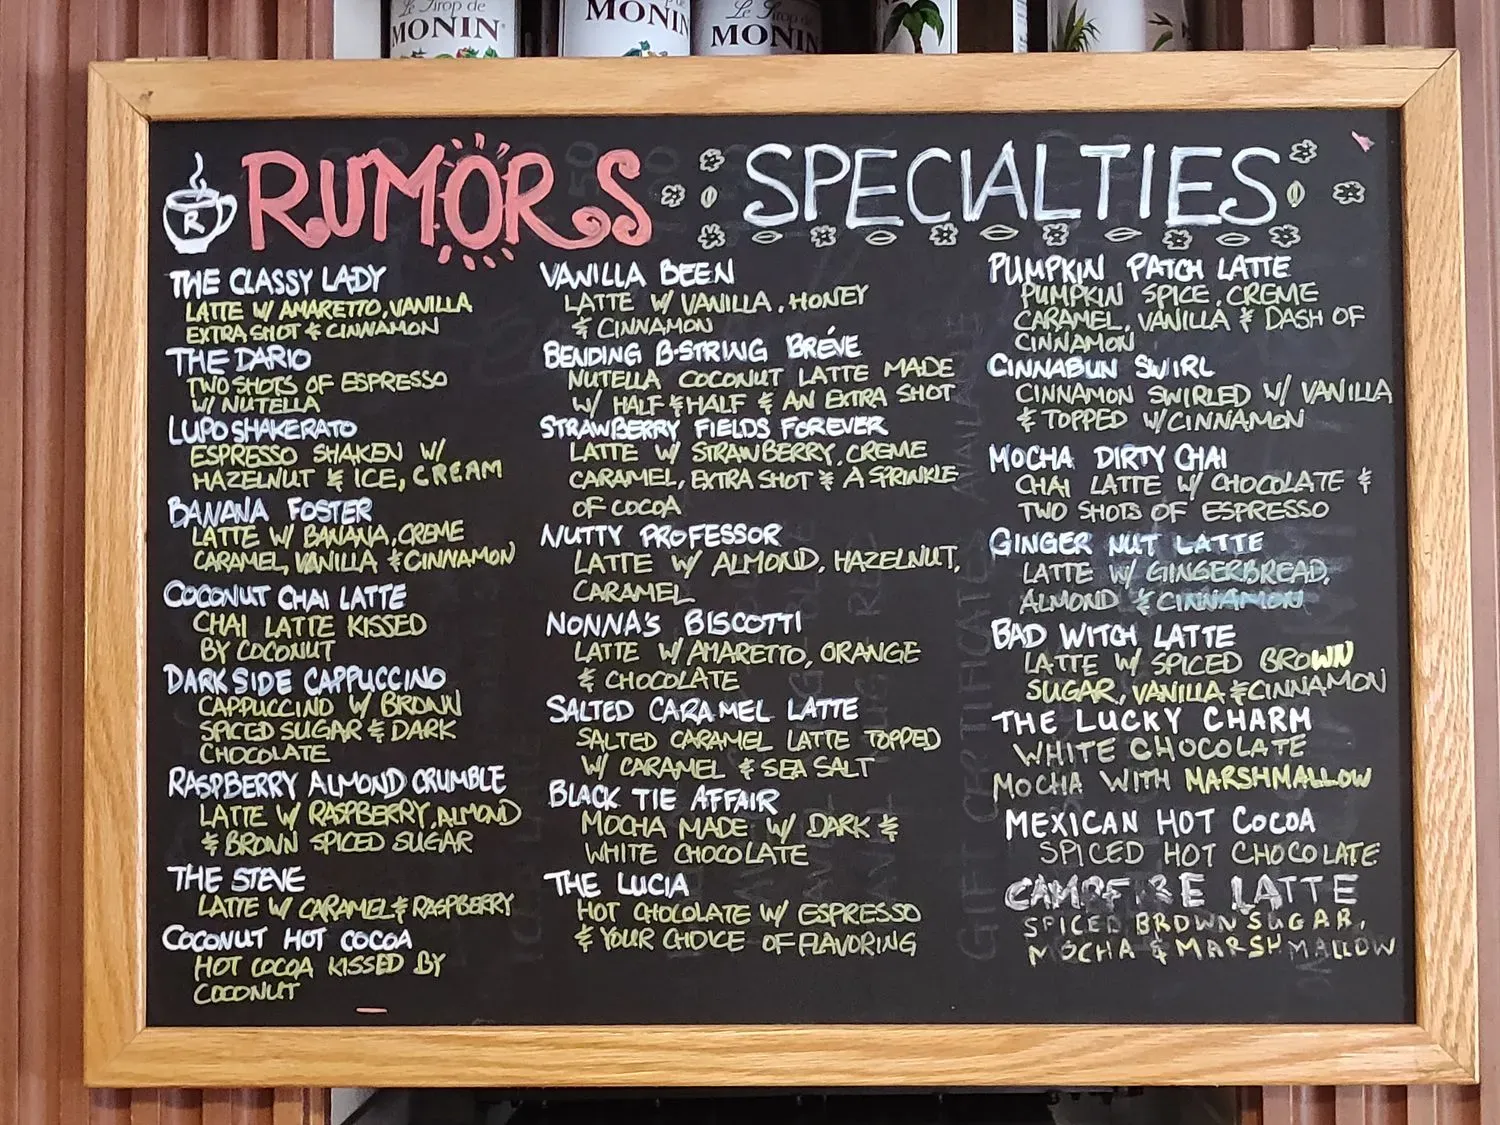 Le Sirop de
MONIN
MONIN
Le Sirop de
MONIN
R
RUMORS SPECIALTIES
THE CLASSY LADY
LATTE W/ AMARETTO, VANILLA
EXTRA SHOT & CINNAMON
THE DARIO
TWO SHOTS OF ESPRESSO
W/ NUTELLA
LUPO SHAKERATO
ESPRESSO SHAKEN W/
HAZELNUT & ICE, CREAM
BANANA FOSTER
LATTE W/ BANANA, CREME
CARAMEL, VANILLA & CINNAMON
COCONUT CHAI LATTE
CHAI LATTE KISSED
BY COCONUT
DARK SIDE CAPPUCCINO
CAPPUCCINO W/ BROWN
SPICED SUGAR & DARK
CHOCOLATE
RASPBERRY ALMOND CRUMBLE
LATTE W/ RASPBERRY, ALMOND
& BROWN SPICED SUGAR
THE STEVE
LATTE W/ CARAMEL & RASPBERRY
COCONUT HOT COCOA
HOT COCOA KISSED BY
COCONUT
VANILLA BEEN
LATTE W/ VANILLA, HONEY
& CINNAMON
BENDING B-STRING BRÉVE
NUTELLA COCONUT LATTE MADE
W/ HALF & HALF & AN EXTRA SHOT
STRAWBERRY FIELDS FOREVER
LATTE W/ STRAWBERRY, CREME
CARAMEL, EXTRA SHOT & A SPRINKLE
OF COCOA
NUTTY PROFESSOR
LATTE W/ ALMOND, HAZELNUT,
CARAMEL
NONNA'S BISCOTTI
LATTE W/ AMARETTO, ORANGE
& CHOCOLATE
SALTED CARAMEL LATTE
SALTED CARAMEL LATTE TOPPED
W/ CARAMEL & SEA SALT
BLACK TIE AFFAIR
MOCHA MADE W/ DARK &
WHITE CHOCOLATE
THE LUCIA
HOT CHOCOLATE W/ ESPRESSO
& YOUR CHOICE OF FLAVORING
PUMPKIN PATCH LATTE
PUMPKIN SPICE, CREME
CARAMEL, VANILLA & DASH OF
CINNAMON
CINNABUN SWIRL
CINNAMON SWIRLED W/ VANILLA
& TOPPED W/ CINNAMON
MOCHA DIRTY CHAI
CHAI LATTE W/ CHOCOLATE &
TWO SHOTS OF ESPRESSO
GINGER NUT LATTE
LATTE W/ GINGERBREAD,
ALMOND & CINNAMON
BAD WITCH LATTE
LATTE W/ SPICED BROWN
SUGAR, VANILLA & CINNAMON
THE LUCKY CHARM
WHITE CHOCOLATE
MOCHA WITH MARSHMALLOW
MEXICAN HOT COCOA
SPICED HOT CHOCOLATE
CAMPFIRE LATTE
SPICED BROWN SUGAR,
MOCHA & MARSHMALLOW
GIFT CERTIFICATES AVAILABLE